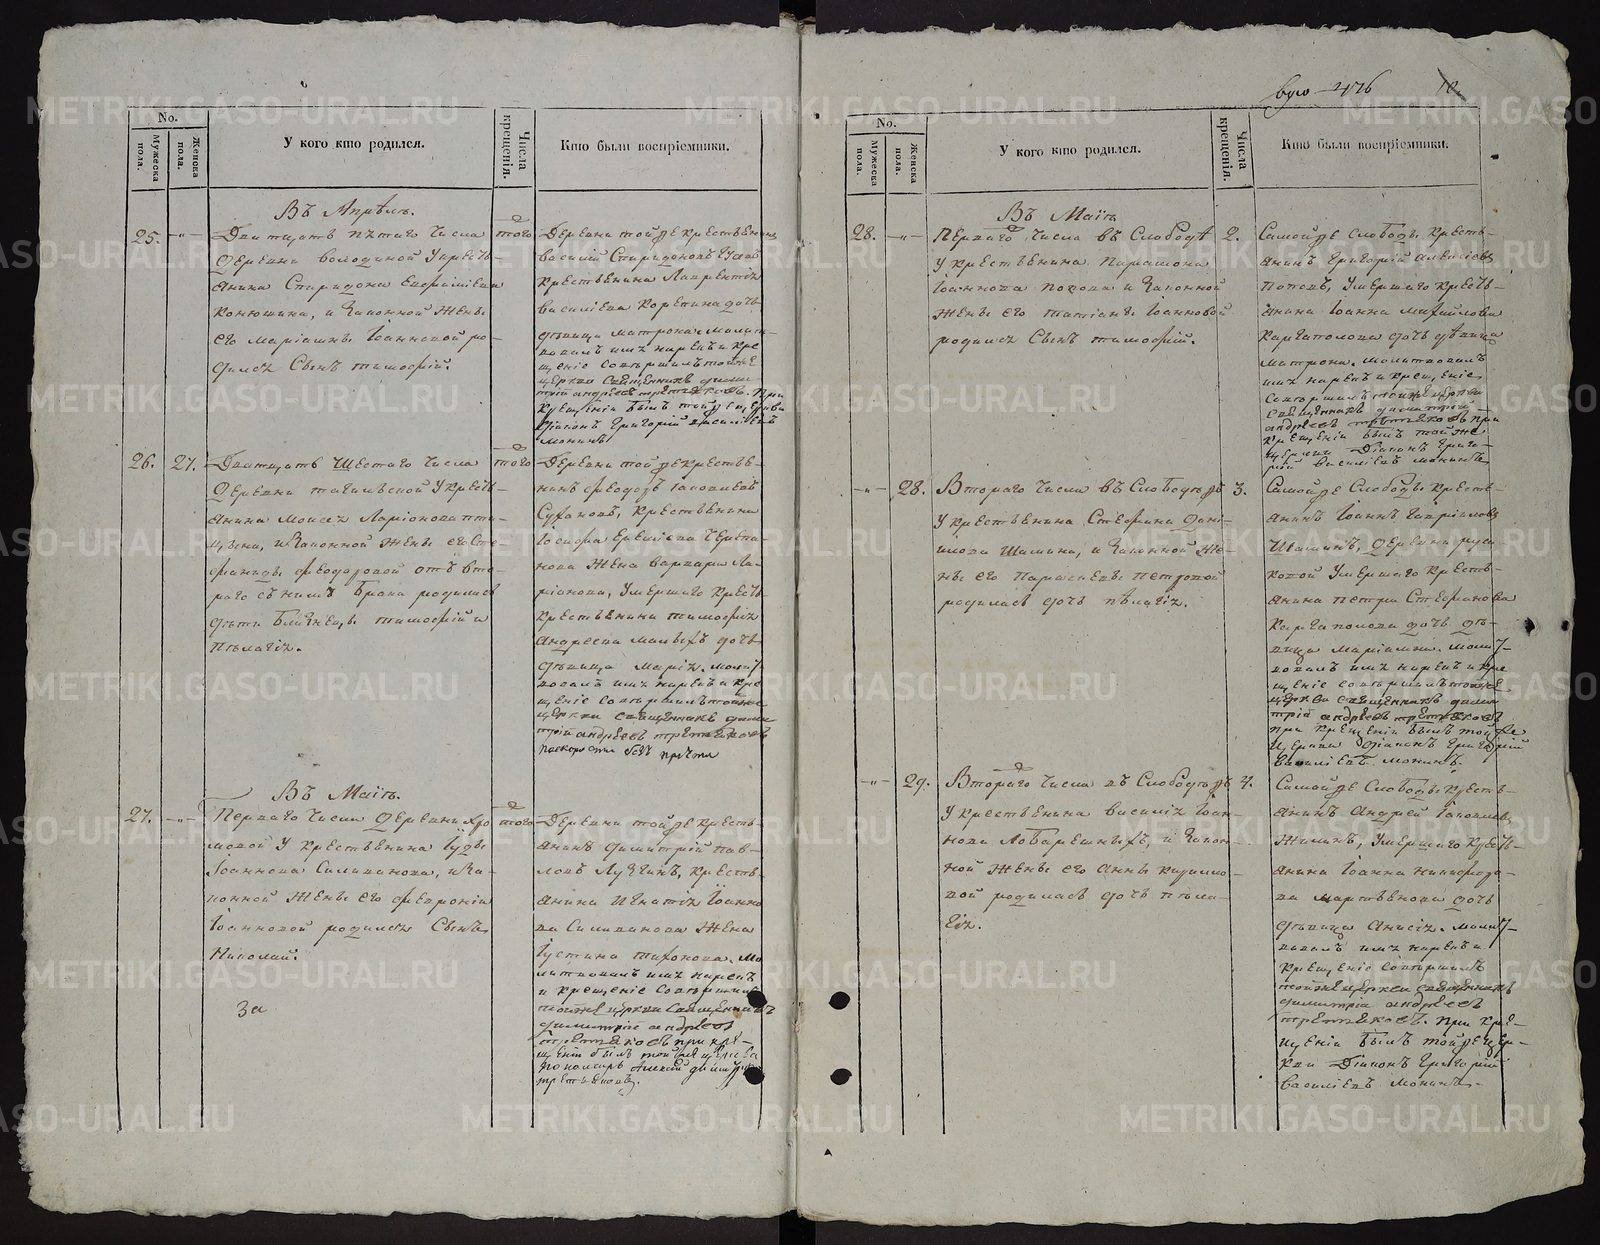 No.
Мужеска пола.
Женска пола.
У кого кто родился.
Числа крещенія.
Кто были воспріемники.
Въ Апрѣлѣ.
25.
Дватцать пѣтаго числа
деревни володиной у кресть-
янина Спиридона
Конюшина, и законной жены
его маріамны Іоанновой ро-
дился сынъ тимофей.
тогож
Деревни тойже крестьянинъ
василій Спиридоновъ
крестьянина Лаврентія
василіева Корепина дочь
дѣвица матрона. молит-
вовалъ имя нарекъ и кре
щеніе совершилъ тойже
церкви священникъ дими
трій андреевъ третьяковъ. при
крещеніи былъ тойже церкви
діаконъ григорій василіевъ
монинъ
26. 27.
Дватцать шестаго числа
деревни тагильской у кресть-
янина Моисея Ларіонова пти-
цына, и законной жены его Сте-
фаниды феодоровой отъ вто-
раго съ нимъ брака родились
дѣти близнецы тимофей и
пелагія.
тогож
Деревни тойже крестья-
нинъ феодотъ
крестьянина
жена варвара Ла-
ріонова, умершаго кресть-
крестьянина тимофея
Андреева малыхъ дочь
дѣвица марія. молит-
вовалъ имя нарекъ и кре
щеніе совершилъ тойже
церкви священникъ дими
трій андреевъ третьяковъ
Въ Маіѣ.
27.
Перваго числа деревни хро
мовой у крестьянина Іуды
Іоаннова Селиванова, и за-
конной жены его февроніи
Іоанновой родился сынъ
Николай.
тогож
Деревни тойже кресть-
янинъ димитрій пав-
ловъ Лузгинъ, кресть-
янина Игнатія Іоанно
ва Селиванова жена
Іустина тихонова. мо
литвовалъ имя нарекъ
и крещеніе совершилъ
тойже церкви священникъ
димитрій андреевъ
третьяковъ при кре-
щеніи былъ тойже церкви
пономарь Алексей димитріевъ
третьяковъ.
За
10.
No.
Мужеска пола.
Женска пола.
У кого кто родился.
Числа крещенія.
Кто были воспріемники.
Въ Маіѣ
28.
Перваго числа въ слободѣ
у крестьянина парамона
Іоаннова попова и законной
жены его татіаны Іоанновой
родился сынъ тимофей.
2.
Самойже слободы кресть-
янинъ григорій алексіевъ
поповъ, умершаго кресть-
янина Іоанна михайлова
каргаполова дочь дѣвица
матрона. молитвовалъ
имя нарекъ и крещеніе
совершилъ тойже церкви
священникъ димитрій
андреевъ третьяковъ при
крещеніи былъ тойже
церкви діаконъ григо-
рій василіевъ монинъ
28.
Втораго числа въ слободѣ
у крестьянина Стефана дани-
илова Шамина, и законной же-
ны его параскевы петровой
родилась дочь пелагія.
3.
Самойже слободы кресть-
янинъ Іоаннъ гавріиловъ
деревни
умершаго кресть-
янина петра Стефанова
каргаполова дочь дѣ-
вица маріамна. молит-
вовалъ имя нарекъ и кре
щеніе совершилъ тойже
церкви священникъ дими
трій андреевъ третьяковъ
при крещеніи былъ тойже
церкви діаконъ григорій
василіевъ монинъ.
29.
Втораго числа въ слободѣ
у крестьянина василія Іоан-
нова Лобарешныхъ, и закон-
ной жены его Анны кирилло-
вой родилась дочь пела-
гія.
4.
Самойже слободы кресть-
янинъ Андрей Іаковлевъ
Жилинъ, умершаго кресть-
янина Іоанна никифоро-
ва мартьянова дочь
дѣвица Анисія. молит-
вовалъ имя нарекъ и
крещеніе совершилъ
тойже церкви священникъ
димитрій андреевъ
третьяковъ. при кре-
щеніи былъ тойже цер-
кви діаконъ григорій
василіевъ монинъ.
METRIKI.GASO-URAL.RU